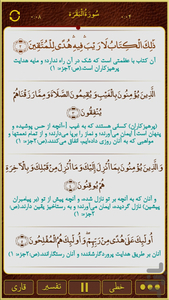 ۰۰۸ سُورَةُ البَقَرَة ۰۰۲
ذَٰلِكَ الْكِتَابُ لَا رَيْبَ فِيهِ هُدًى لِلْمُتَّقِينَ ﴿۲﴾
آن کتاب با عظمتی است که شک در آن راه ندارد؛ و مایه هدایت
پرهیزکاران است.(ص۲جزء ۱)
الَّذِينَ يُؤْمِنُونَ بِالْغَيْبِ وَيُقِيمُونَ الصَّلَاةَ وَمِمَّا رَزَقْنَاهُمْ
يُنْفِقُونَ ﴿۳﴾
(پرهیزکاران) کسانی هستند که به غیب [=آنچه از حس پوشیده و
پنهان است] ایمان می‌آورند؛ و نماز را برپا می‌دارند؛ و از تمام نعمتها و
مواهبی که به آنان روزی داده‌ایم، انفاق می‌کنند.(ص۲جزء ۱)
وَالَّذِينَ يُؤْمِنُونَ بِمَا أُنْزِلَ إِلَيْكَ وَمَا أُنْزِلَ مِنْ قَبْلِكَ وَبِالْآخِرَةِ
هُمْ يُوقِنُونَ ﴿۴﴾
و آنان که به آنچه بر تو نازل شده، و آنچه پیش از تو (بر پیامبران
پیشین) نازل گردیده، ایمان می‌آورند؛ و به رستاخیز یقین دارند.(ص۲جزء ۱)
أُولَٰئِكَ عَلَىٰ هُدًى مِنْ رَبِّهِمْ وَأُولَٰئِكَ هُمُ الْمُفْلِحُونَ ﴿۵﴾
آنان بر طریق هدایت پروردگارشانند؛ و آنان رستگارانند.(ص۲جزء ۱)
خطی تفسیر قاری